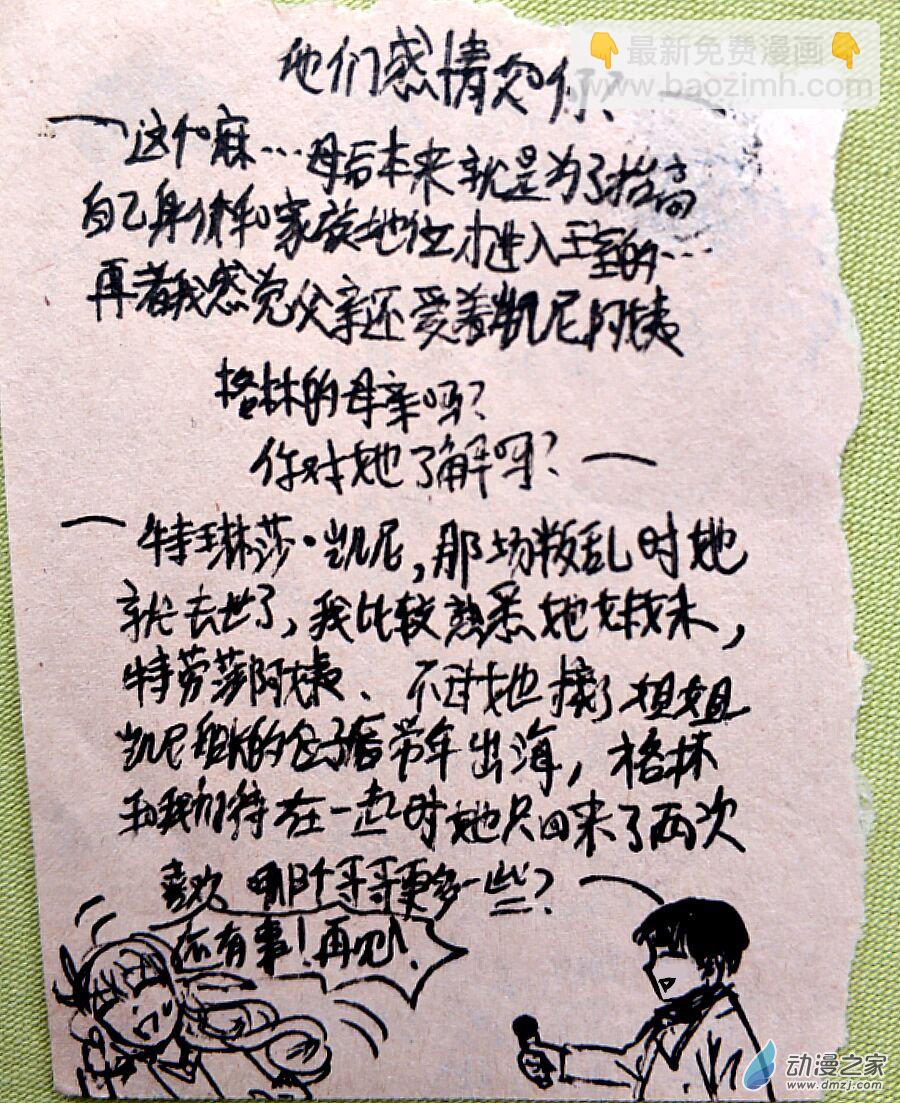 👇最新免费漫画👇
www.baozimh.com
他们感情如何?
这个嘛…母后本来就是为了抬高
自己身价和家族地位才进入王室的…
再者我感觉父亲还爱着凯尼阿姨
格林的母亲吗?
你对她了解吗?
特琳莎·凯尼,那场叛乱时她
就去世了,我比较熟悉她妹妹,
特劳莎阿姨、不过她接了姐姐
凯尼的位子后常年出海,格林
和我们待在一起时她只回来了两次
喜欢哪个哥哥更多一些?
还有事!再见!
动漫之家
www.dmzj.com